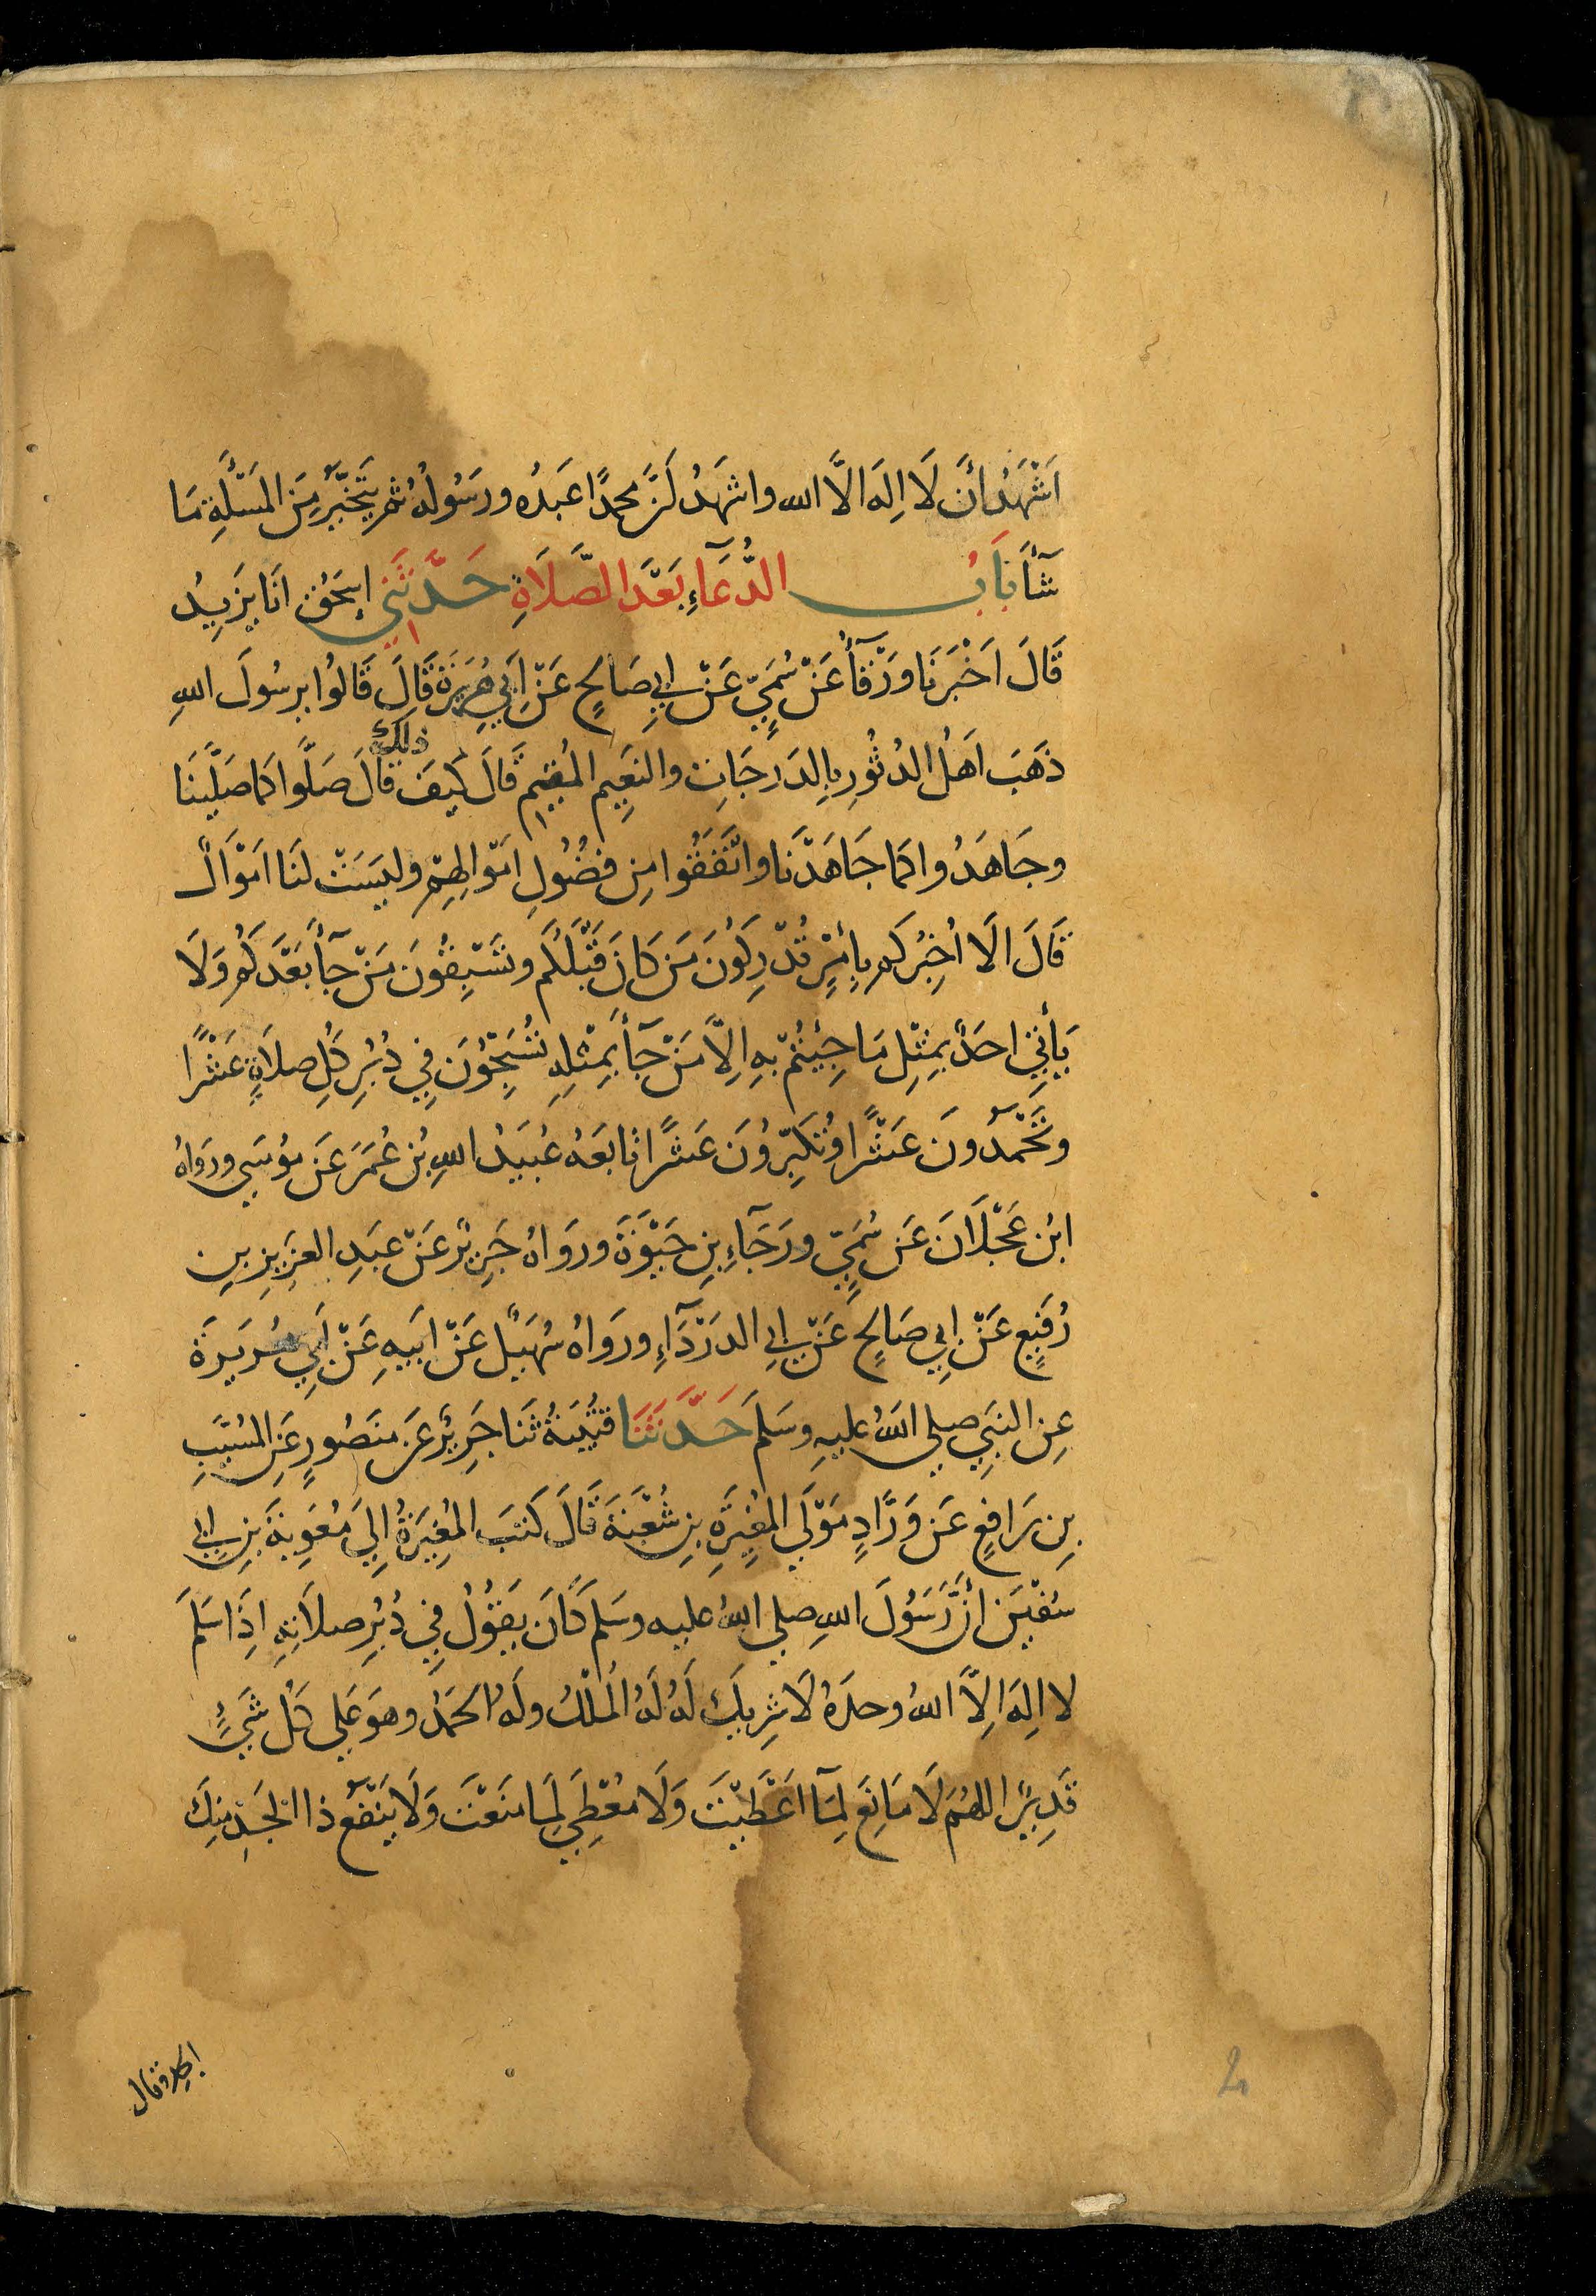 اَشْهَدُ أَن لَا اِلَهَ الَّا الله واشهَدُ اَنَّ محمدًا عَبدُه ورَسُولُهُ ثم يَتَخَيَّر مِنَ المَسْئَلَةِ مَا
شَآءَ بَابُ الدُّعَآءِ بَعْدَ الصَّلَاةِ حَدَّثَنِي إسحَقُ انَا يَزِيدُ
قَالَ اَخْبَرَنَا وَرْقَآءُ عَنْ سُمَيٍّ عَنْ ابِي صَالِحٍ عَنْ اَبِي هُرَيرَةَ قَالَ قَالُوا يرسُولَ اللهِ
ذَهَبَ اَهلُ الدُثُورِ بِالدَرَجَاتِ والنعِيمِ المُقِيمِ قَالَ كَيفَ ذلك قَالَ صَلَّوا كمَا صَلَّينَا
وجَاهَدُوا كمَا جَاهَدْنَا وانْفَقُوا مِن فضُولِ امْوالِهِمْ وليسَتْ لَنَا امْوَالٌ
قَالَ الَا اُخبِرُكم بِامْرٍ تُدْرِكُونَ مَن كَانَ قَبْلَكُم وتَسْبِقُونَ مَنْ جآءَ بَعْدَكُم وَلَا
يَأتِي احدٌ بمِثْلِ مَا جِئتُمْ بهِ الَّا مَنْ جَآءَ بمِثْلِهِ تُسَبِّحُونَ فِي دُبُرِ كُلِ صلَاةٍ عَشْرًا
وتَحْمَدُونَ عَشْرًا وتُكَبِّرُونَ عَشرًا تَابعَهُ عُبَيدُ اللهِ بُن عُمَرَ عَن سُمَيٍّ ورَوَاهُ
ابْن عَجْلَانَ عَن سُمَيٍّ ورَجَآءِ بنِ حَيْوَةَ وروَاهُ جَرِيرٌ عَنْ عبَدِ العزِيزِ بنِ
رُفَيعٍ عَنْ ابِي صَالِحٍ عَنْ ابِي الدرْدَآءِ وروَاهُ سُهَيلٌ عَنْ ابَيهِ عَنْ اَبِي هُرَيرَةَ
عِن النبَيِ صلي اللهُ عليهِ وسَلمَ حَدَّثَنَا قتُيبَةُ ثنَا جَرِيرٌ عَن مَنصُورٍ عَنِ المُسَيَّبِ
بِن رَافِعٍ عَن وَرَّادٍ مَوْلَي المُغِيرَةِ بنِ شُعْبَةَ قَالَ كَتَبَ المُغِيرَةُ اِلَي مُعَوِيةَ بنِ ابِي
سُفيَنَ أنَّ رَسُولَ اللهِ صلي اللهُ عليه وسَلمَ كَانَ يَقوُلُ فِي دُبُرِ صلَاتِهِ اِذَا سَلمَ
لا الِهَ الِاَّ اللهُ وحدَهُ لَا شرِيكَ لَهُ لَهُ الُملْكُ ولَهُ الحَمْدُ وهوَ عَلي كُلِ شَيءٍ
قَدِيرٌ اللهُمَ لَا مَانِعَ لِمَا اعَطَيْتَ وَلَا مُعْطِيَ لِمَا منَعْتَ وَلَا يَنفَعُ ذا الجَدِ مِنكَ
الجد وقال
2